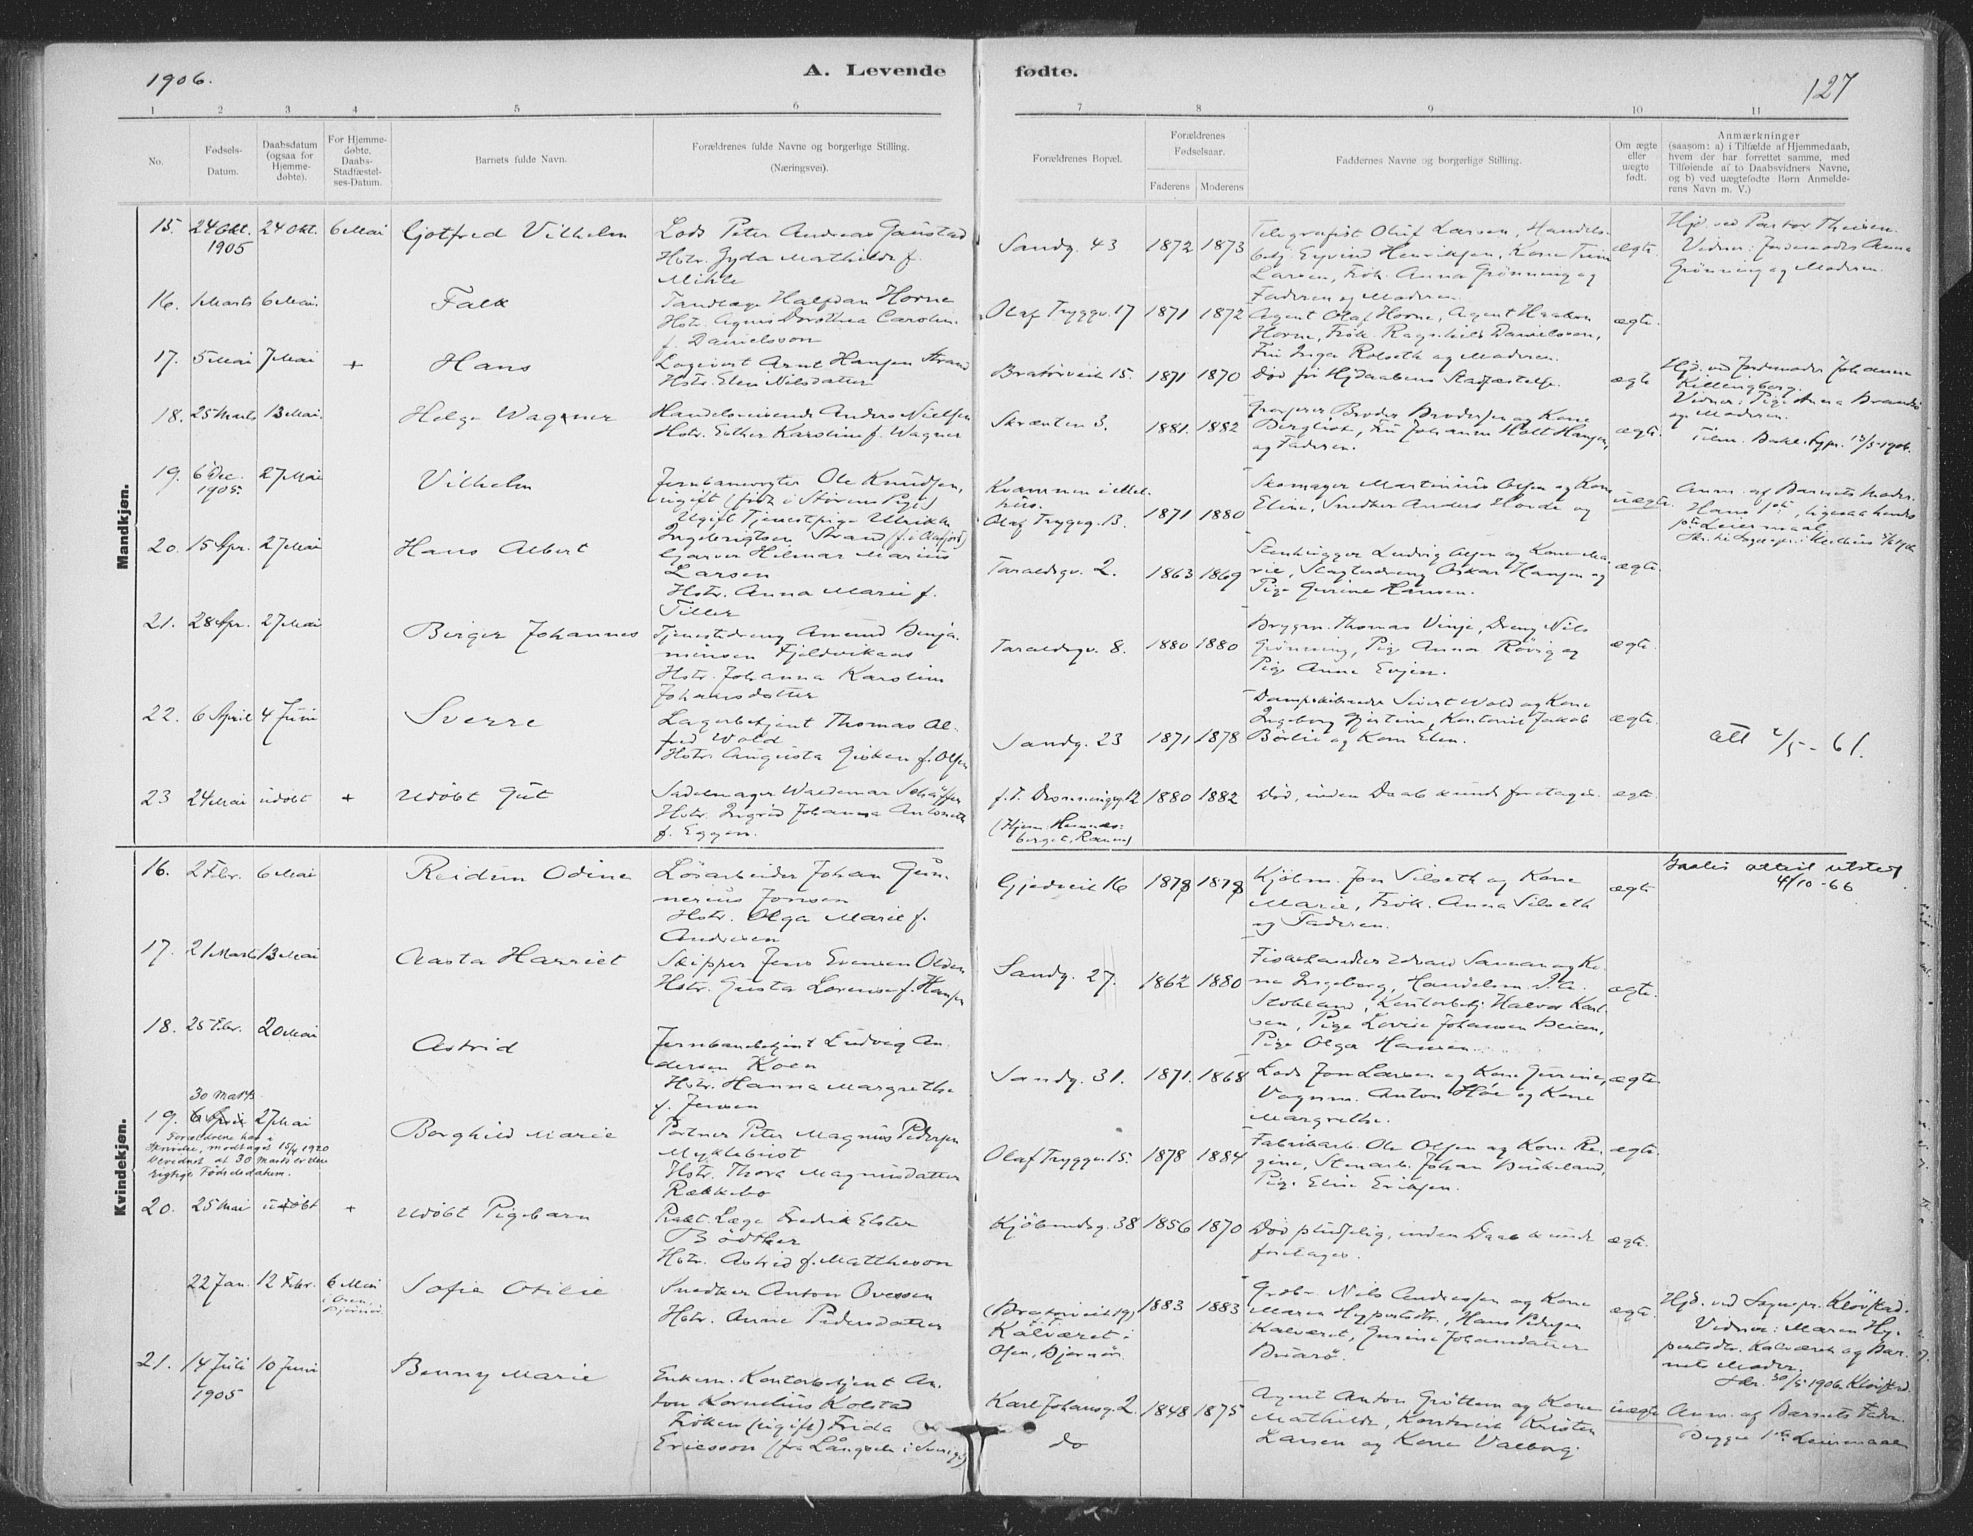 1906.
A. Levende fødte.
127
1 2 3 4 5 6 7 8 9 10 11
No.
Fødsels-
Datum.
Daabsdatum
(ogsaa for
Hjemme-
døbte).
For Hjemme-
døbte.
Daabs-
Stadfæstel-
ses-Datum.
Barnets fulde Navn.
Forældrenes fulde Navne og borgerlige Stilling.
(Næringsvei).
Forældrenes Bopæl.
Forældrenes
Fødselsaar.
Faderens Moderens
Faddernes Navne og borgerlige Stilling.
Om ægte
eller
uægte
født.
Anmærkninger
(saasom: a) i Tilfælde af Hjemmedaab,
hvem der har forrettet samme, med
Tilføiende af to Daabsvidners Navne,
og b) ved uægtefødte Børn Anmelde-
rens Navn m. V.)
Mandkjøn.
15. 24 Okt. 1905
24 Okt.
6 Mai
Gjotfred Vilhelm
Lods Peter Andreas Gaustad
Hstr. Gyda Mathilde f.
Mihle
Sandg. 43
1872 1873
Telegrafist Oluf Larsen, Handels-
betj. Eyvind Henriksen, Kone Trine
Larsen, Frøk. Anna Grønning og
Faderen og Moderen.
ægte.
Hjd. ved Pastor Theisen.
Vidner: Jordemoder Anna
Grønning og Moderen.
16. 1 Marts 6 Mai
Falk
Tandlæge Halfdan Horne
Hstr. Agnes Dorothea Carolin.
f. Danielsson
Olaf Tryggv. 17
1871 1872
Agent Olaf Horne, Agent Haakon
Horne, Frøk. Ragnhild Danielsson,
Fru Inga Rolseth og Moderen.
ægte.
17. 5 Mai 7 Mai +
Hans
Logevert Arnt Hansen Strand
Hstr. Elen Nilsdatter
Bratørveit 15.
1871 1870
Død før Hjdaabens Stadfæstelse.
ægte
Hjd. ved Jordemoder Johanna
Killingberg.
Vidner: Pige Anna Brandsø
og Moderen.
18. 25 Marts 13 Mai
Helge Wagner
Handelsreisende Anders Nielsen
Hstr. Esther Karoline f. Wagner
Skrænten 3.
1881. 1882
Broder Brodersen og Kone
Bergliot, Fru Johanna Holt Hansen,
og Faderen.
ægte.
Tilm. Bakl. Sgpr. 13/5-1906.
19. 6 Dec. 1905. 27 Mai
Vilhelm
Jernbanevogter Ole Knudsen,
ugift (født i Størens Pgj)
Ugift Tjenestpige Ulrikke
Ingebrigtsen Strand
Kvammen i Mel-
hus.
Olaf Trygg. 13.
1871 1880
Skomager Martinius Olsen og Kone
Eline, Snedker Anders Hovde og
uægte
Anm. af Barnets Moder.
Hans 1ste, ligesaa hendes
1ste Leiermaal.
20. 15 Apr. 27 Mai
Hans Albert
Garver Hilmar Marius
Larsen
Hstr. Anna Marie f.
Tiller
Taraldsgv. 2.
1863 1869
Stenhugger Ludvig Olsen og Kone Ma-
rie, Slagterdreng Oskar Hansen og
Pige Gurine Hansen.
ægte.
21. 28 Apr. 27 Mai
Birger Johannes
Tjenestedreng Amund Benja-
minsen Fjeldvikaas
Hstr. Johanna Karoline
Johansdatter
Taraldsgv. 8.
1880 1880
Bryggm. Thomas Vinje, Dreng Nils
Grønning, Pige Anna Røvig og
Pige Anne Evjen.
ægte.
22. 6 April 4 Juni
Sverre
Lagerbetjent Thomas Al-
fred Wold
Hstr. Augusta Gisken f. Olsen
Sandg. 23
1871 1878
Dampskibsfører Sivert Wold og Kone
Ingeborg Gjertine, Kontorist Jakob
Børlie og Kone Elen.
ægte.
att 2/5-61.
23 24 Mai udøbt +
Udøbt Gut
Sadelmager Waldemar Schäffer
Hstr. Ingrid Johanna Antonette
f. Eggen.
f.T. Dronningsg. 12
(Hjem: Hemnes-
berget, Ranen)
1880 1882
Død, inden Daab kunde foretages.
ægte.
Kvindekjøn.
16. 2 Febr. 6 Mai
Reidun Odine
Løsarbeider Johan Gun-
nerius Jonsen
Hstr. Olga Marie f.
Andresen
Gjedveit 16
1878 1878
Kjøbm. Jon Vilseth og Kone
Marie, Frøk. Anna Vilseth
og Faderen.
ægte
Gratis attest utstedt
4/10-66
17. 21 Marts 13 Mai
Aasta Harriet
Skipper Jens Evensen Olden
Hstr. Gusta Lorense f. Hansen
Sandg. 27.
1862 1880
Fiskehandler Edvard Saxan og Ko-
ne Ingeborg, Handelsm. I.A.
Stokland, Kontorbetj. Halvor Karl-
sen, Pige Lovise Johansen Beian,
Pige Olga Hansen.
ægte.
18. 25 Febr. 20 Mai
Astrid
Jernbanebetjent Ludvig An-
dersen Koen
Hstr. Hanna Margrethe
f. Jensen
Sandg. 31.
1871. 1868
Lods Jon Larsen og Kone Gurine,
Vognm. Anton Høe og Kone
Margrethe.
ægte.
30 Marts.
19. 6 April 27 Mai
Forældrene har i
Skrivelse, modtaget 15/4 1920
bevidnet at 30 Marts er den
rigtige Fødselsdatum.
Borghild Marie
Portner Peter Magnus Pedersen
Myklebust
Hstr. Thora Magnusdatter
Rækkebo
Olaf Tryggv. 15.
1878 1884
Fabrikarb. Ole Olsen og Kone Re-
gine, Stenarb. Johan Buskeland,
Pige Eline Eriksen.
ægte.
20. 25 Mai udøbt +
Udøbt Pigebarn
Prakt. Læge Fredrik Elster
Bødtker
Hstr. Astrid f. Matheson
Kjøbmdsg. 38
1856 1870
Død pludselig, inden Daab kunde
foretages.
ægte.
22 Jan. 12 Febr. 6 Mai
i Osen,
Bjørnør.
Sofie Otilie
Snedker Anton Ovessen
Hstr. Anne Pedersdatter
(Bratørveit 19)
Kalværet i
Osen, Bjørnør.
1883 1883
Grdbr. Nils Andressen og Kone
Maren Hypertsdtr., Hans Pedersen
Kalværet, Gurine Johansdatter
Buarø.
ægte.
Hjd. ved Sognepr. Kløvstad.
Vidner: Maren Hy-
pertsdtr. Kalværet og Bar-
nets Moder.
Skr. 30/5 1906. Kløvstad.
21. 14 Juli 1905 10 Juni
Benny Marie
Enkem. Kontorbetjent An-
ton Kornelius Kolstad
Frøken (ugift) Frida
Ericsson (fra Långsele i Sverige)
Karl Johansg. 2.
do
1848 1875
Agent Anton Grøttum og Kone
Mathilde, Kontorist Kristen
Larsen og Kone Valborg.
uægte
Anm. af Barnets Fader.
Begges 1ste Leiermaal